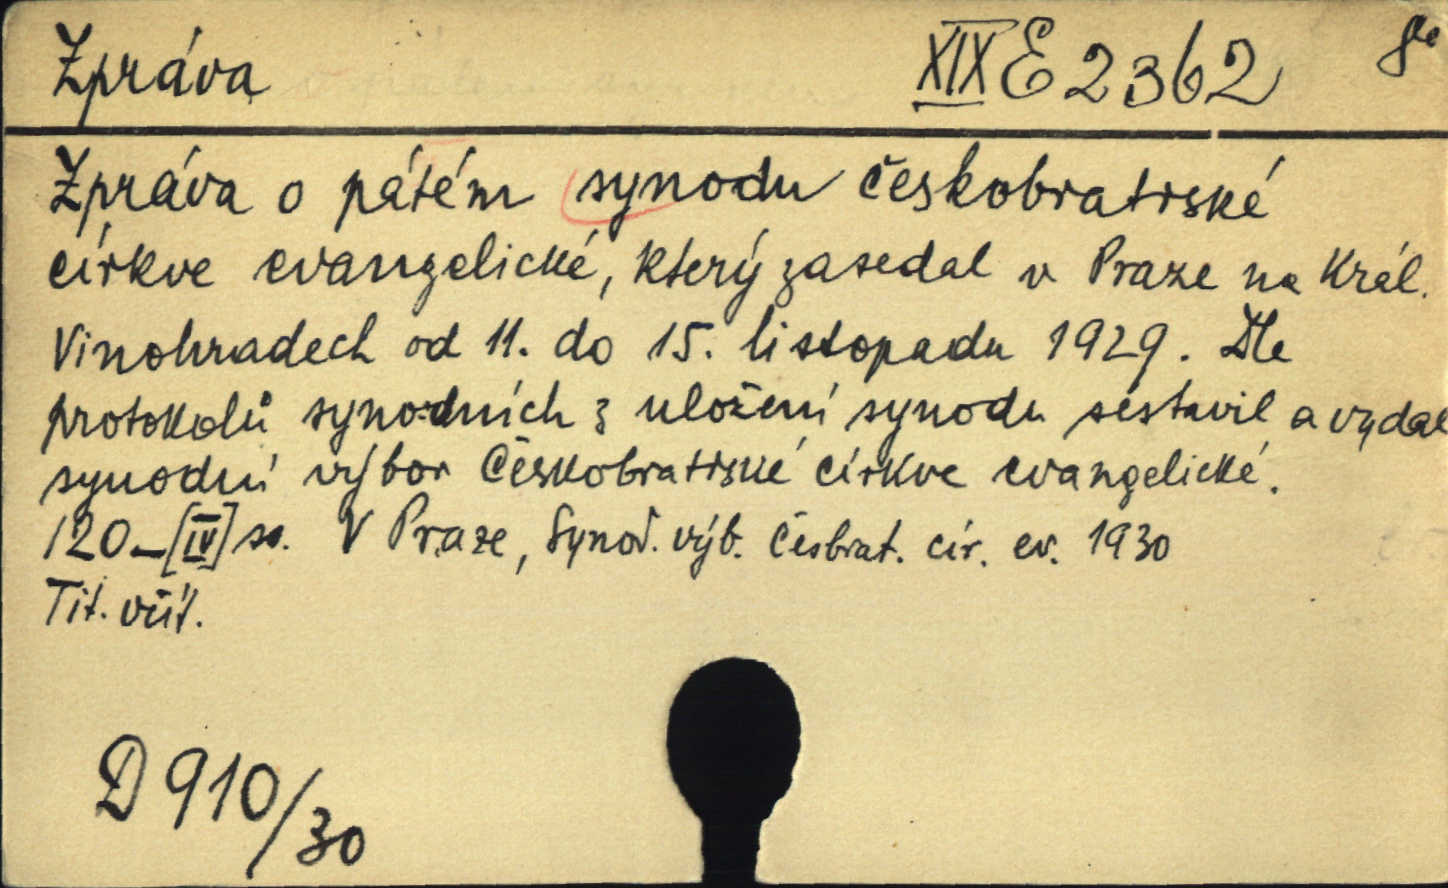 Zpráva XIX E 2362 8°
Zpráva o pátém synodu českobratrské
církve evangelické, který zasedal v Praze na Král.
Vinohradech od 11. do 15. listopadu 1929. Dle
protokolů synodních z uložení synodu sestavil a vydal
synodní výbor Českobratrské církve evangelické.
120-[IV] ss. V Praze, Synod. výb. česbrat. cír. ev. 1930
Tit.
D 910/30